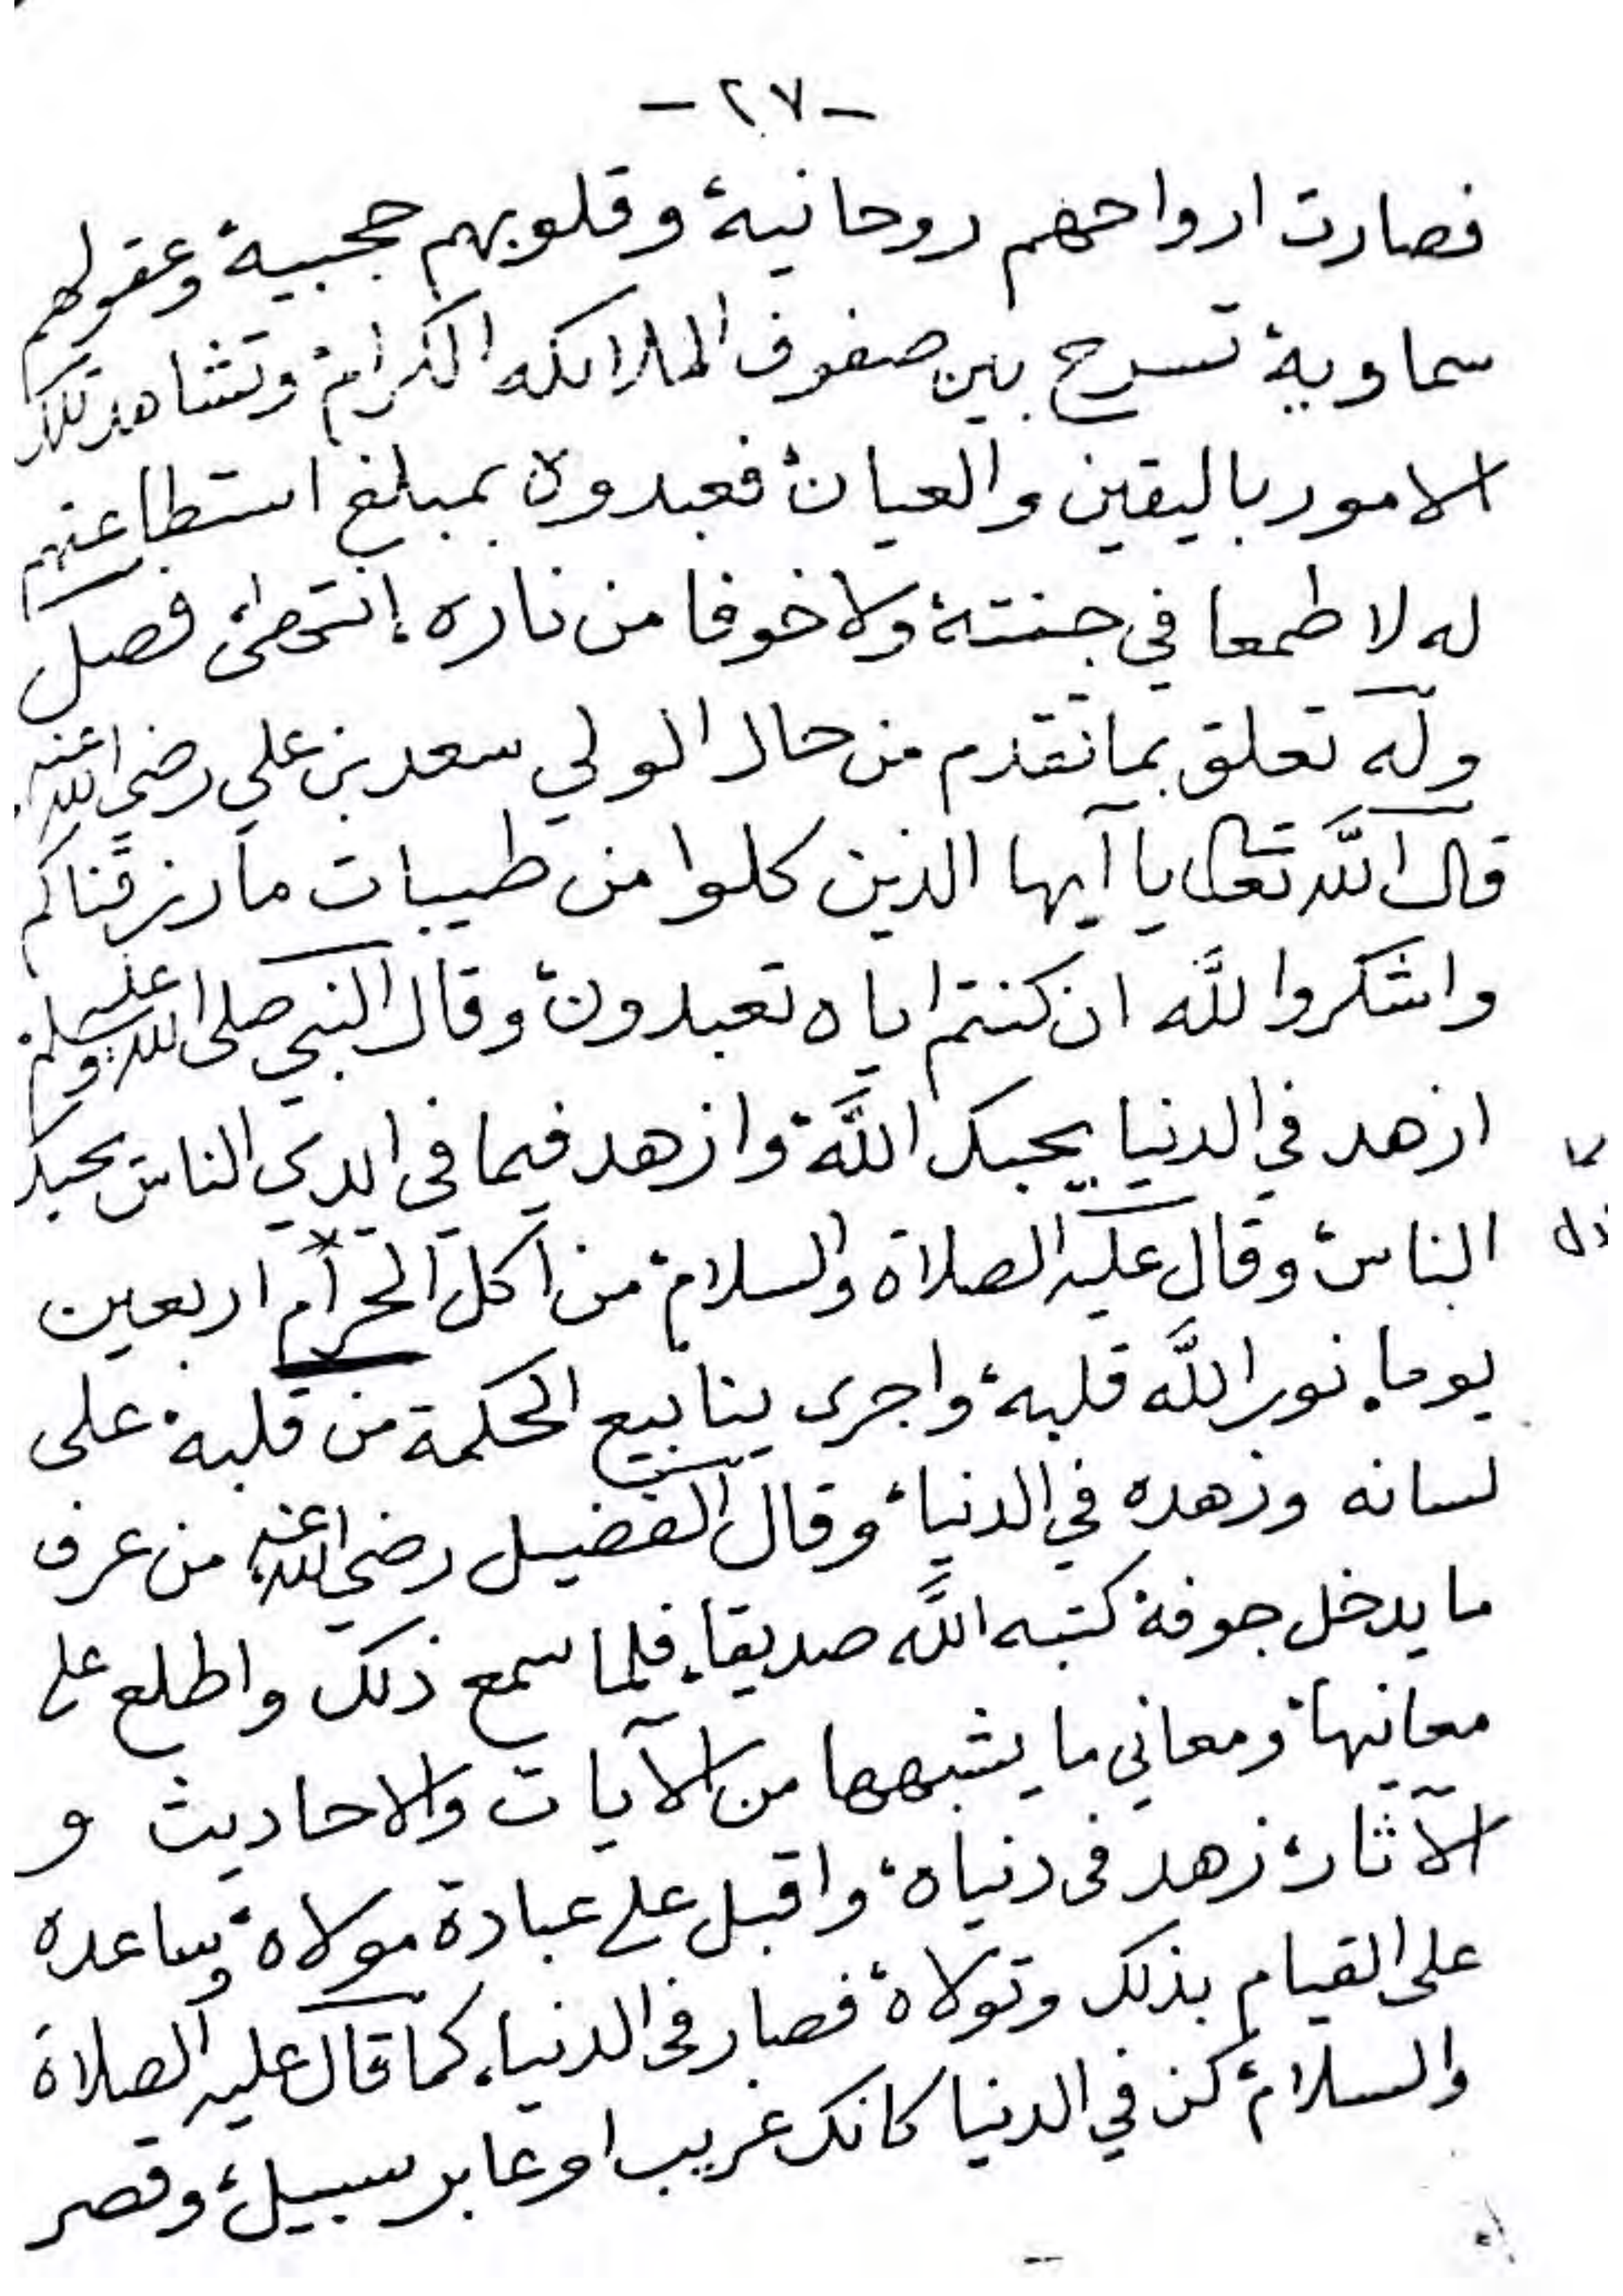 - ٢٧ -
فصارت ارواحهم روحانية وقلوبهم حجبية وعقولهم
سماوية تسرح بين صفوف الملائكه الكرام وتشاهد تلك
الامور باليقين والعيان فعبدوه بمبلغ استطاعتهم
له لا طمعا في جنته ولا خوفا من ناره، انتهى فصل
وله تعلق بما تقدم من حال الولي سعد بن علي رضي الله عنه
قال الله تعالى يا آيها الذين كلوا من طيبات ما رزقناكم
واشكروا لله ان كنتم اياه تعبدون وقال النبي صلى الله عليه وسلم
ازهد في الدنيا يحبك الله وازهد فيما في ايدي الناس يحبك
الناس وقال عليه الصلاة والسلام من اكل الحرام* اربعين
يوما، نور الله قلبه، واجرى ينابيع الحكمة من قلبه على
لسانه وزهده في الدنيا، وقال الفضيل رضي الله عنه من عرف
ما يدخل جوفه كتبه الله صديقا، فلما سمع ذلك واطلع على
معانيها ومعاني ما يشبهها من الآيات والاحاديث و
الآثار، زهد فى دنياه، واقبل على عبادة مولاه، وساعده
على القيام بذلك وتولاه، فصار فى الدنيا، كما قال عليه الصلاة
والسلام، كن في الدنيا كانك غريب او عابر سبيل، وقصر